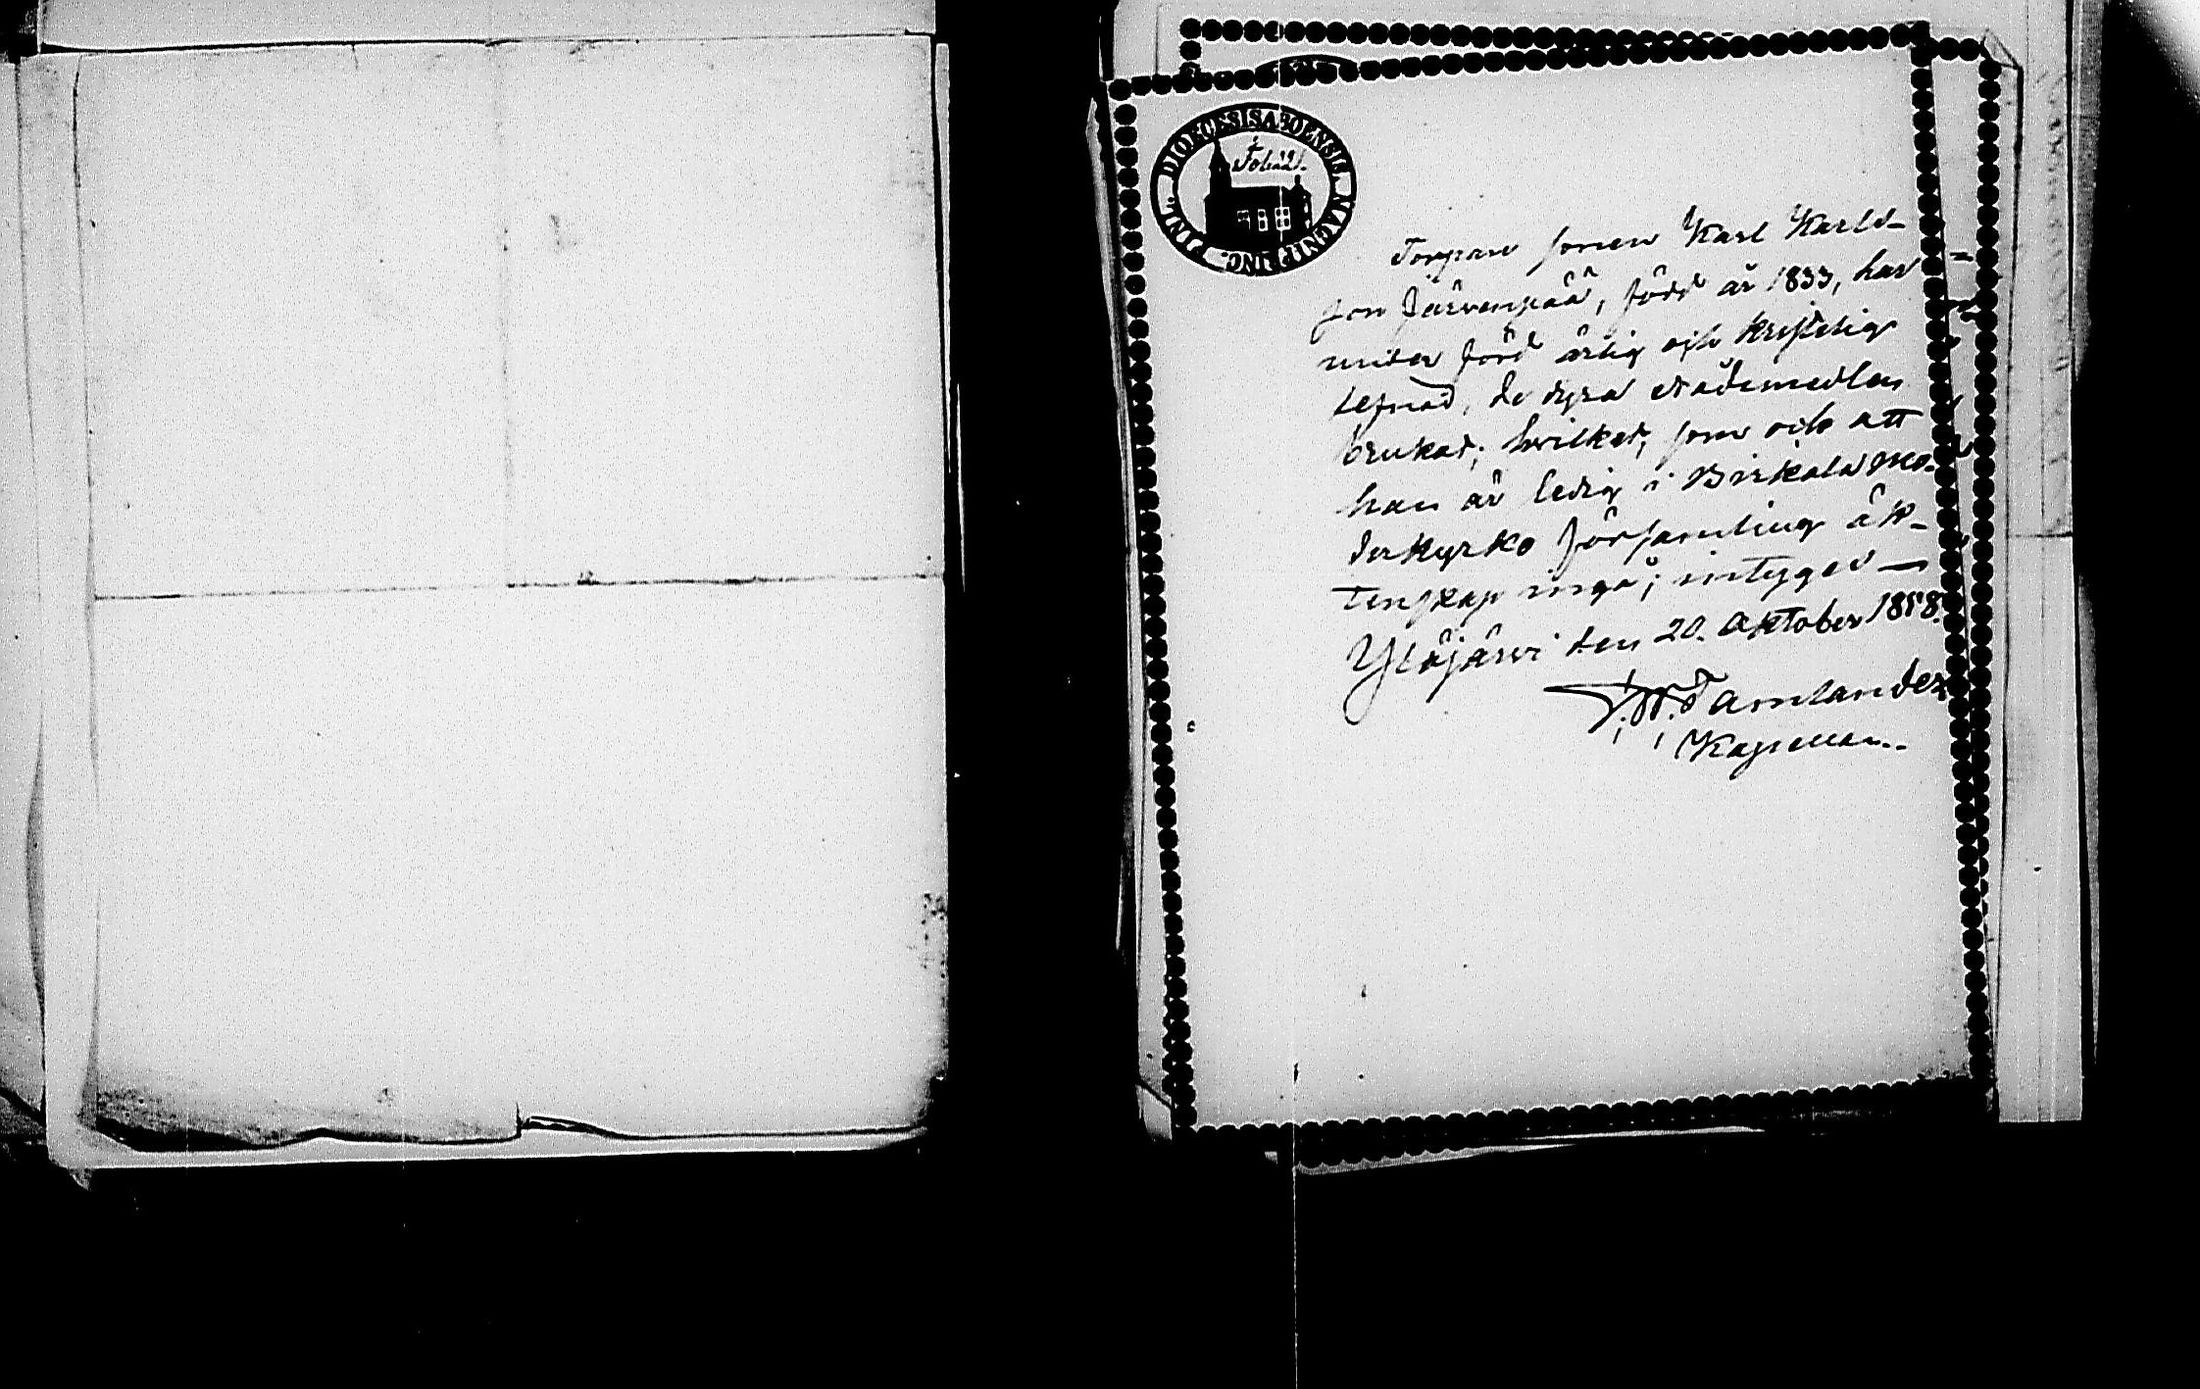 DIOECESIS ABOENSIS. MAGNI PRINC. FINL.
Fol: 221.
Torpare sonen Karl Karls-
son Järvenpää, född år 1833, har
under förd ärlig och kristelig
lefnad, de dyra nådemedlen
brukat; hvilket, som och att
han är ledig i Birkala mo-
derkyrko församling äk-
tenskap ingå; intygas —
Ylöjärvi den 20. Oktober 1858.
Tamlander
Kapellan.